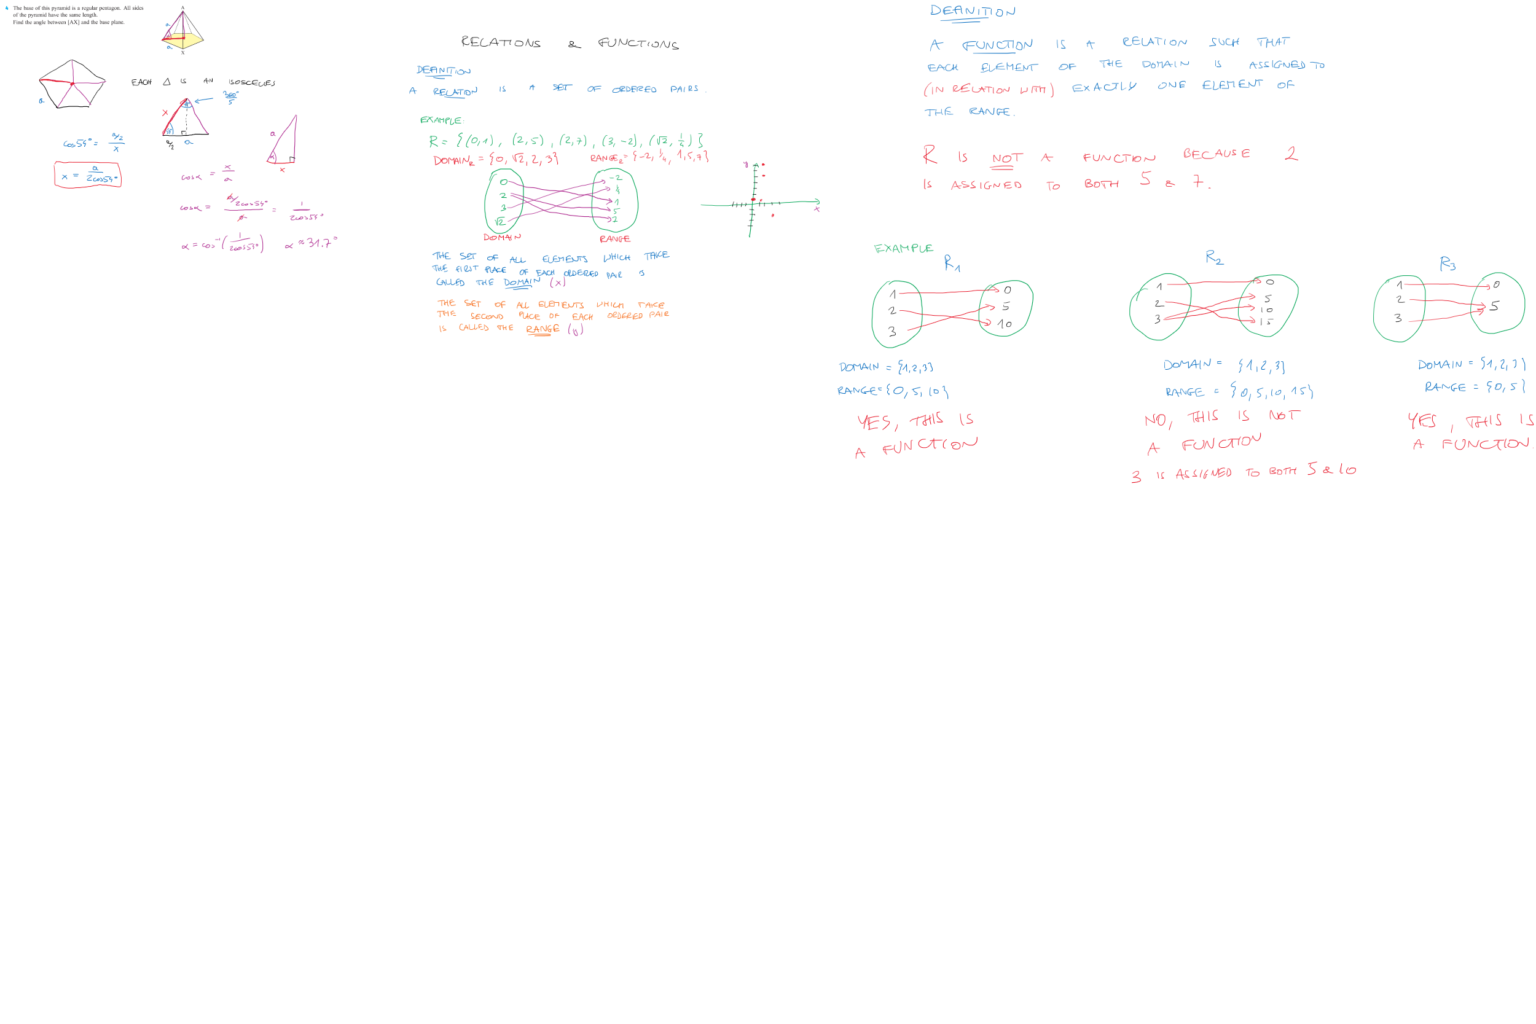 6 The base of this pyramid is a regular pentagon. All sides
of the pyramid have the same length.
Find the angle between [AX] and the base plane.
A
a
a
X
a
EACH △ IS AN ISOSCELES
360°
5
x
a/2
a
cos54° = a/2 / x
x = a / 2cos54°
a
x
cosα = x / a
cosα = a/2cos54° / a = 1 / 2cos54°
α = cos⁻¹(1 / 2cos54°) α ≈ 31.7°
RELATIONS & FUNCTIONS
DEFINITION
A RELATION IS A SET OF ORDERED PAIRS.
EXAMPLE:
R = {(0,1), (2,5), (2,7), (3,-2), (√2, 1/4)}
DOMAIN_R = {0, √2, 2, 3} RANGE_R = {-2, 1/4, 1, 5, 7}
0 -2
2 1/4
3 1
√2 5
7
DOMAIN RANGE
y
x
THE SET OF ALL ELEMENTS WHICH TAKE
THE FIRST PLACE OF EACH ORDERED PAIR IS
CALLED THE DOMAIN (x)
THE SET OF ALL ELEMENTS WHICH TAKE
THE SECOND PLACE OF EACH ORDERED PAIR
IS CALLED THE RANGE (y)
DEFINITION
A FUNCTION IS A RELATION SUCH THAT
EACH ELEMENT OF THE DOMAIN IS ASSIGNED TO
(IN RELATION WITH) EXACTLY ONE ELEMENT OF
THE RANGE.
R IS NOT A FUNCTION BECAUSE 2
IS ASSIGNED TO BOTH 5 & 7.
EXAMPLE
R₁
1 0
2 5
3 10
DOMAIN = {1,2,3}
RANGE = {0, 5, 10}
YES, THIS IS
A FUNCTION
R₂
1 0
2 5
3 10
15
DOMAIN = {1,2,3}
RANGE = {0, 5, 10, 15}
NO, THIS IS NOT
A FUNCTION
3 IS ASSIGNED TO BOTH 5 & 10
R₃
1 0
2 5
3
DOMAIN = {1,2,3}
RANGE = {0, 5}
YES, THIS IS
A FUNCTION